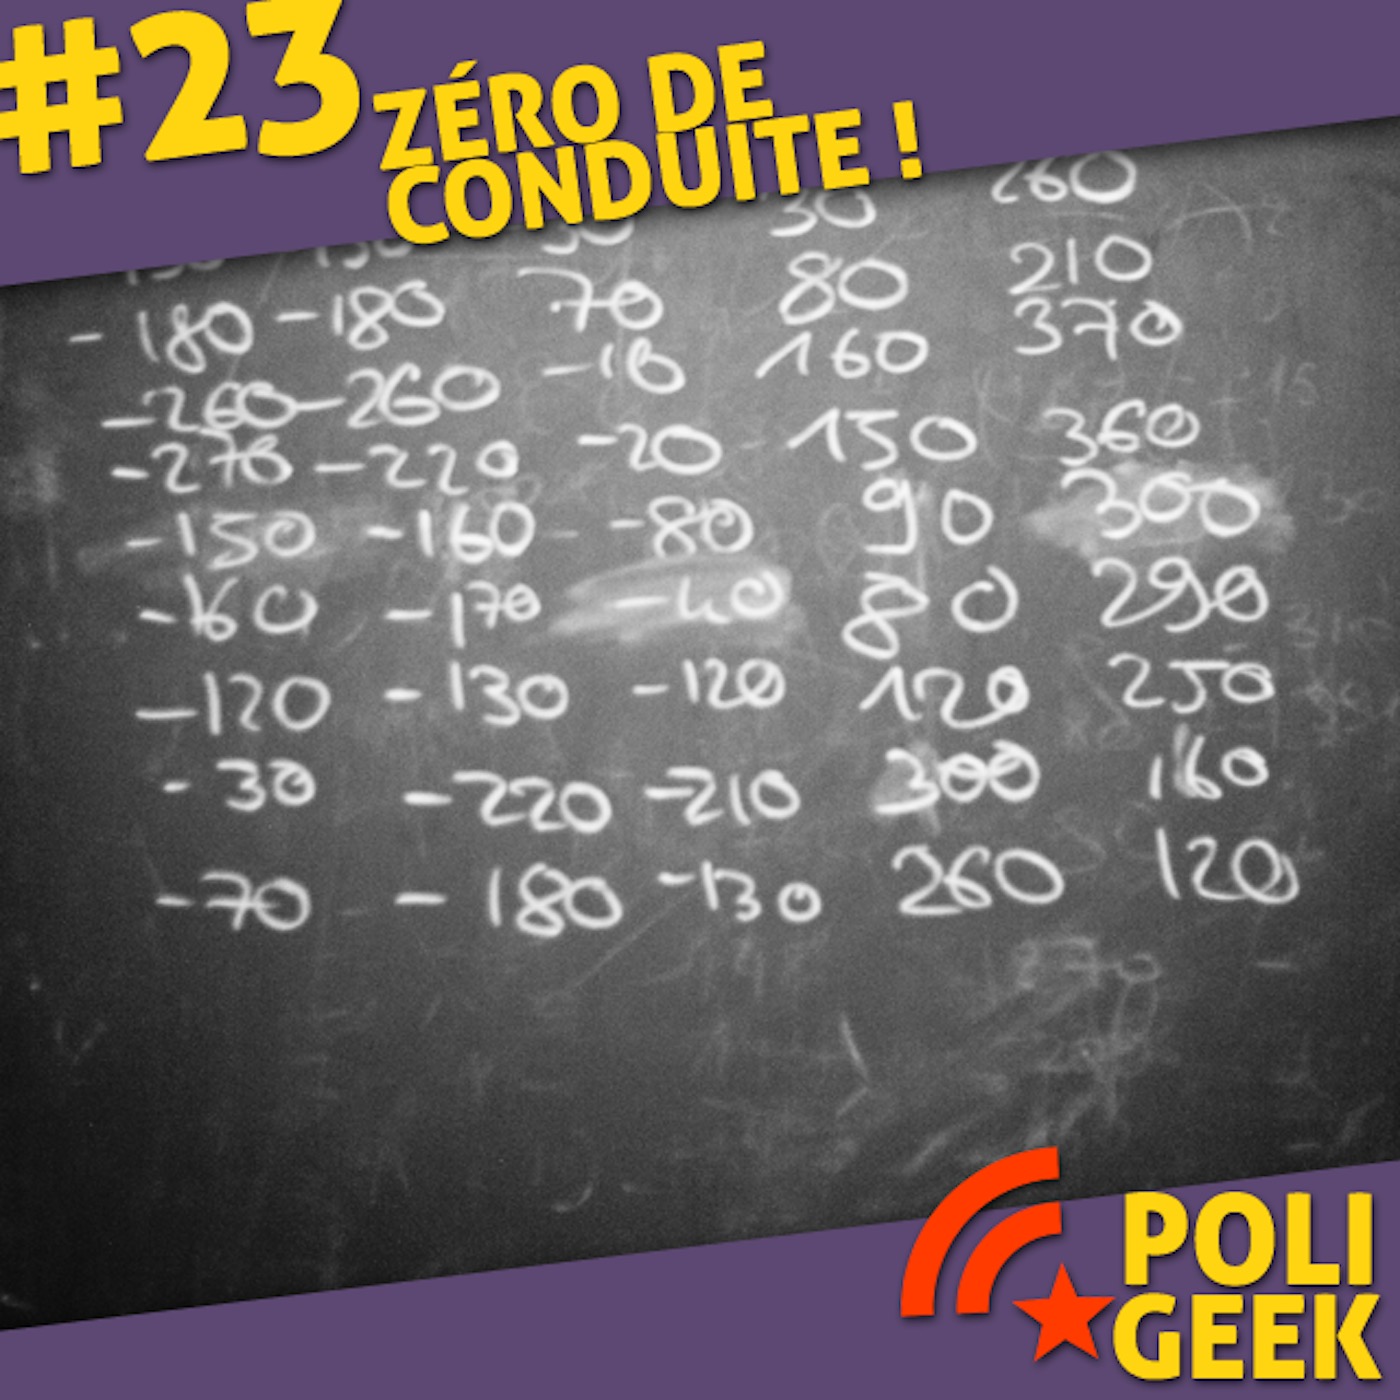 #23 ZÉRO DE
CONDUITE !
30 260
-180 -180 70 80 210
-260 -260 -10 160 370
-270 -220 -20 150 360
-150 -160 -80 90 300
-160 -170 -40 80 290
-120 -130 -120 120 250
-30 -220 -210 300 160
-70 -180 -130 260 120
POLI
GEEK